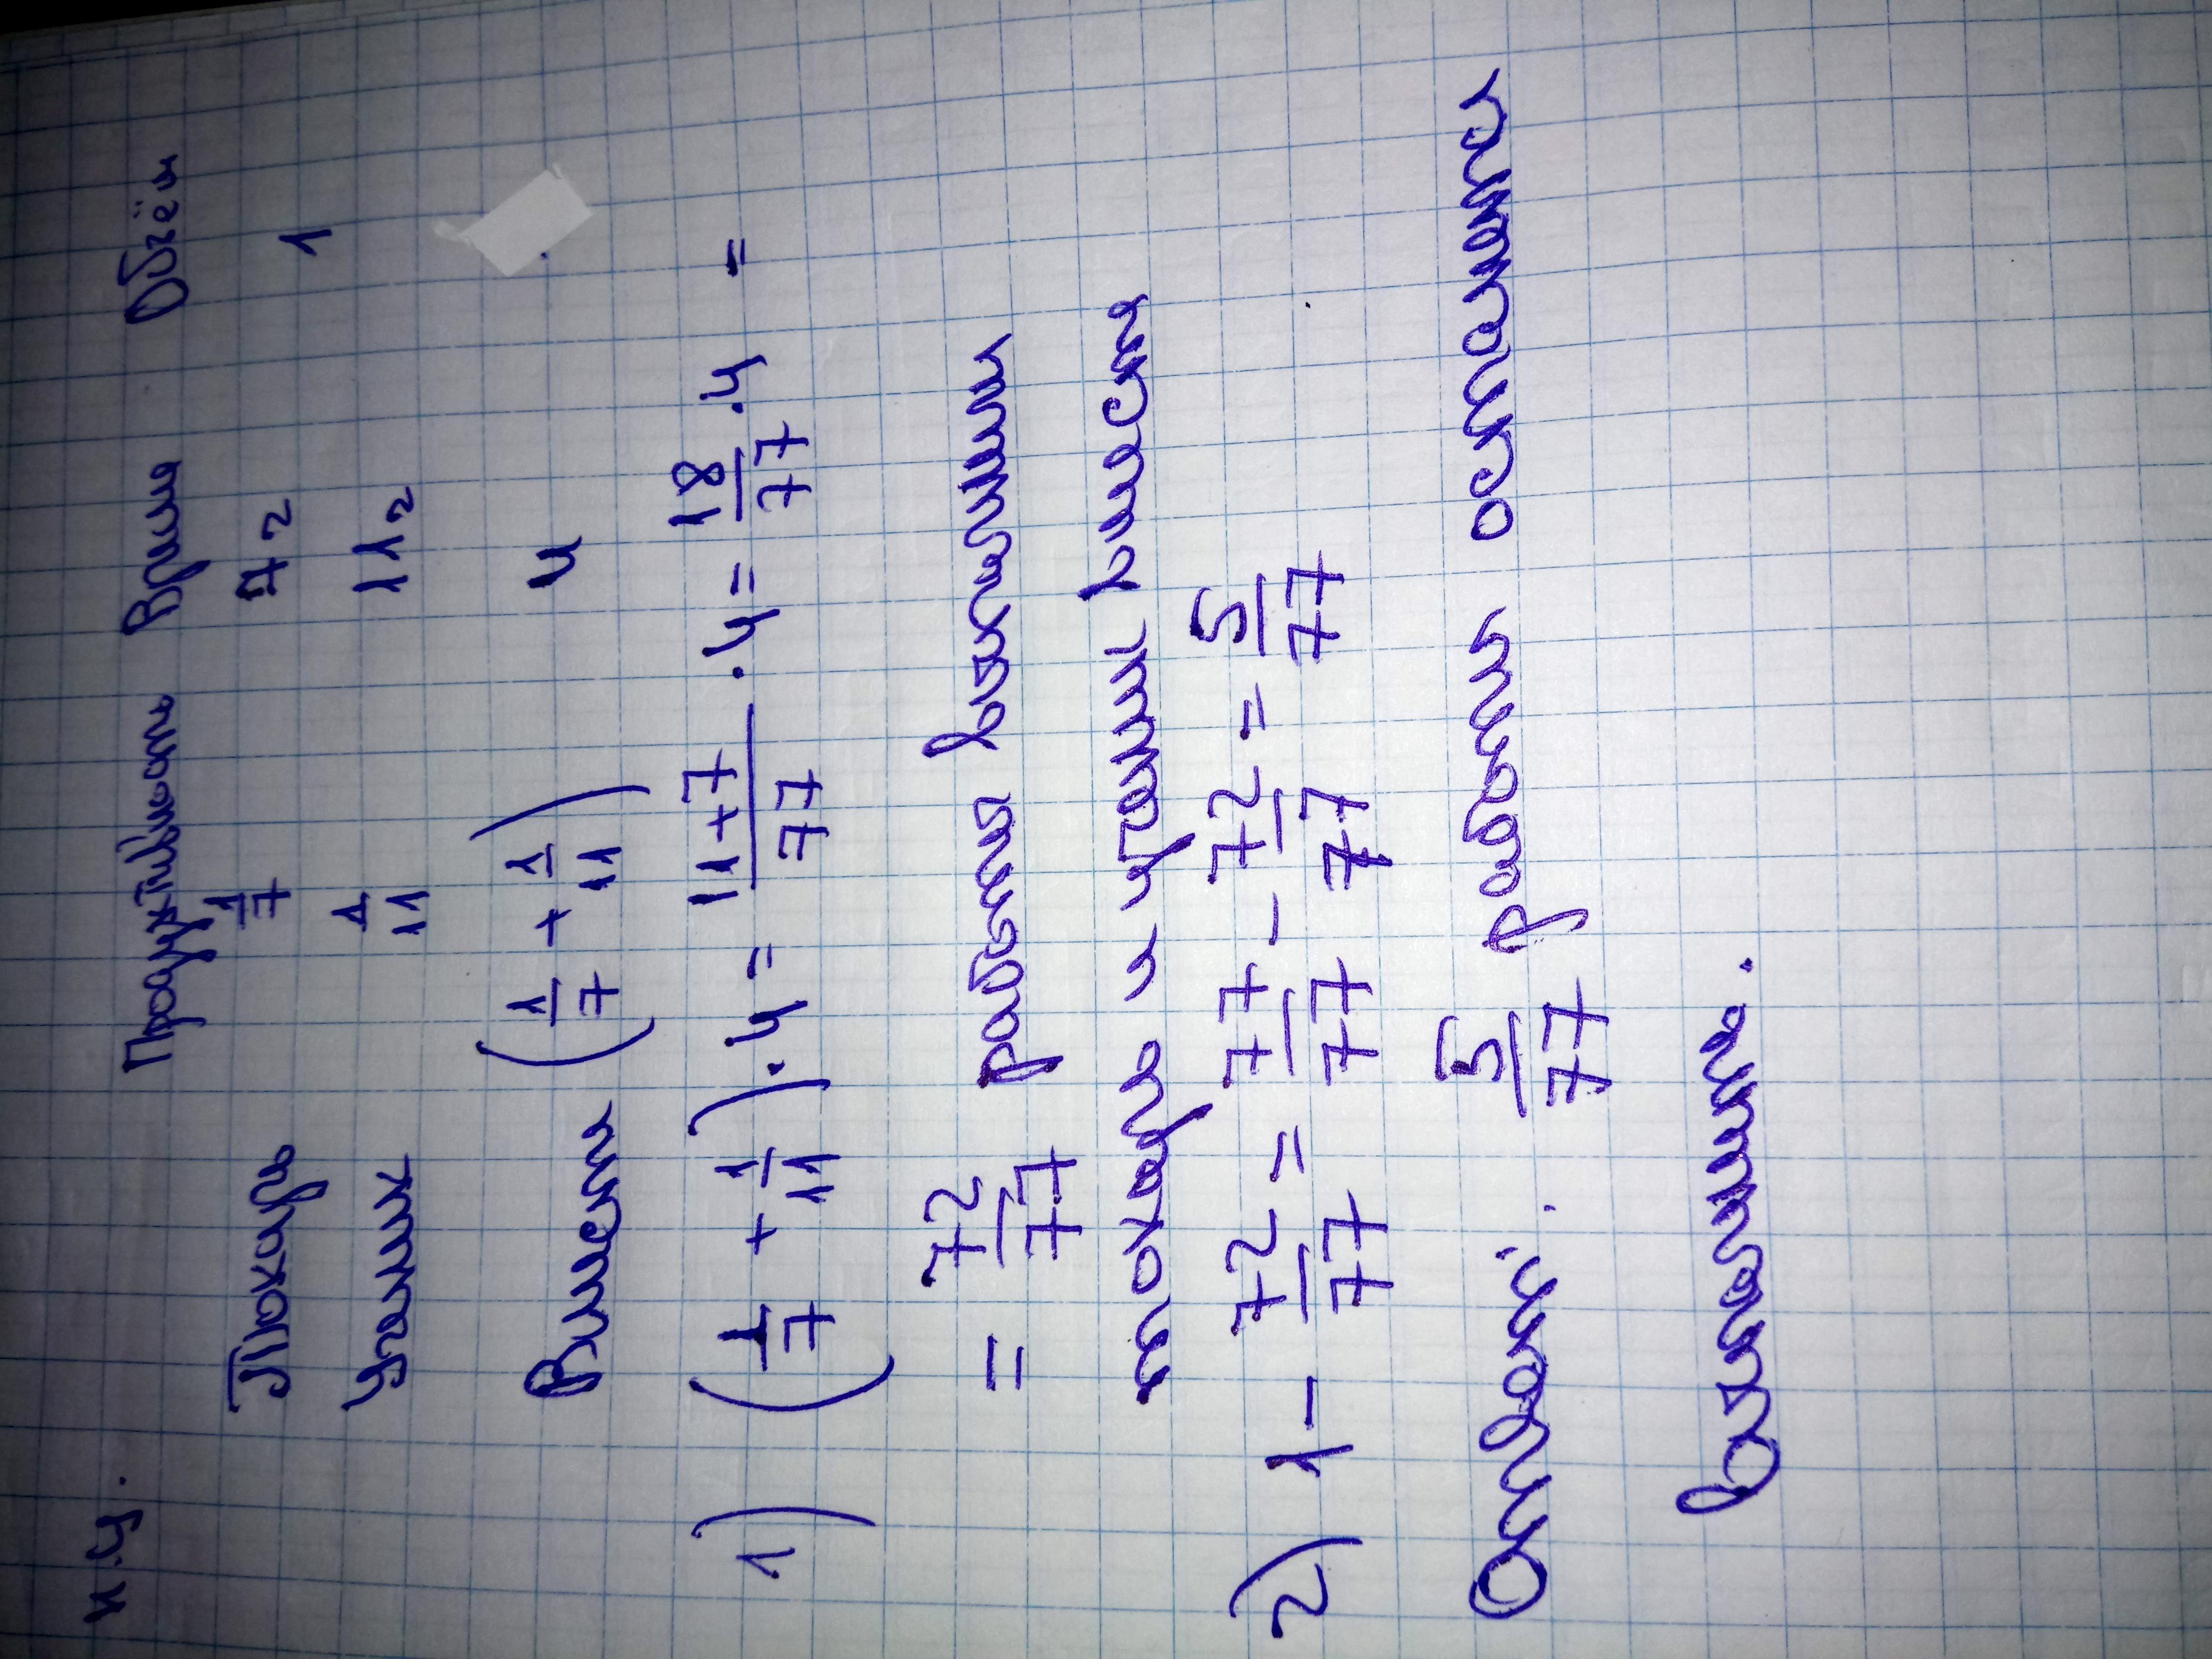 н.ч.
Продуктивность Время Объём
Токарь 1/7 7г 1
Ученик 1/11 11г
Вместе (1/7 + 1/11) 4
1) (1/7 + 1/11) · 4 = 11+7/77 · 4 = 18/77 · 4 =
= 72/77 работы выполнили
токарь и ученик вместе
2) 1 - 72/77 = 77/77 - 72/77 = 5/77
Ответ: 5/77 работы осталось
выполнить.